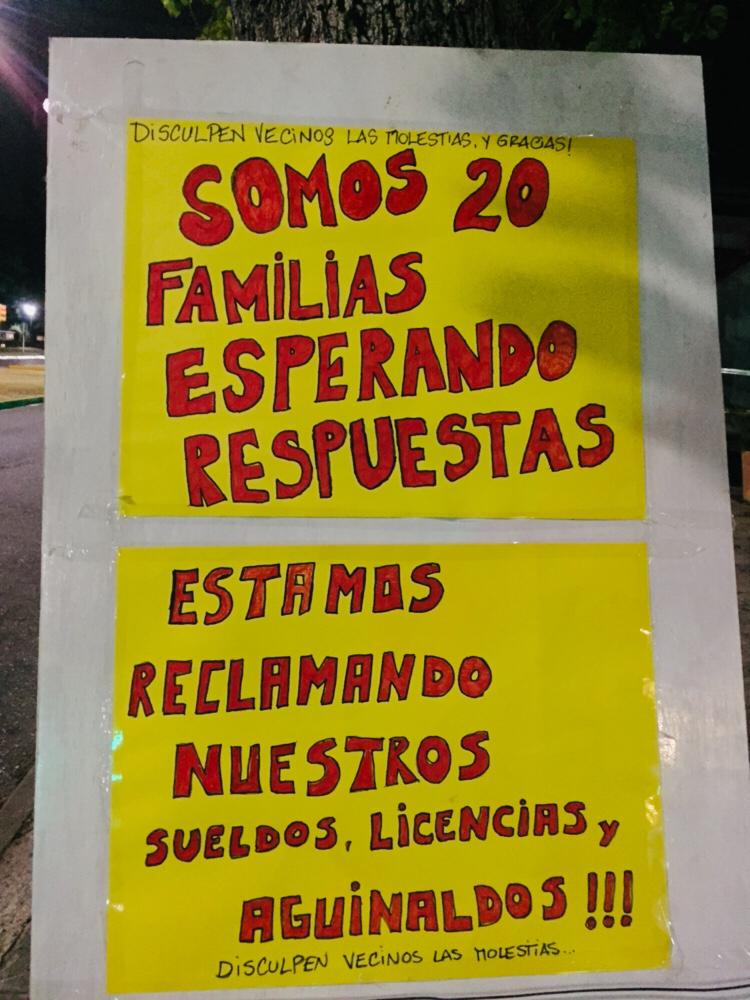 DISCULPEN VECINOS LAS MOLESTIAS, Y GRACIAS!
SOMOS 20
FAMILIAS
ESPERANDO
RESPUESTAS
ESTAMOS
RECLAMANDO
NUESTROS
SUELDOS, LICENCIAS y
AGUINALDOS !!!
DISCULPEN VECINOS LAS MOLESTIAS...